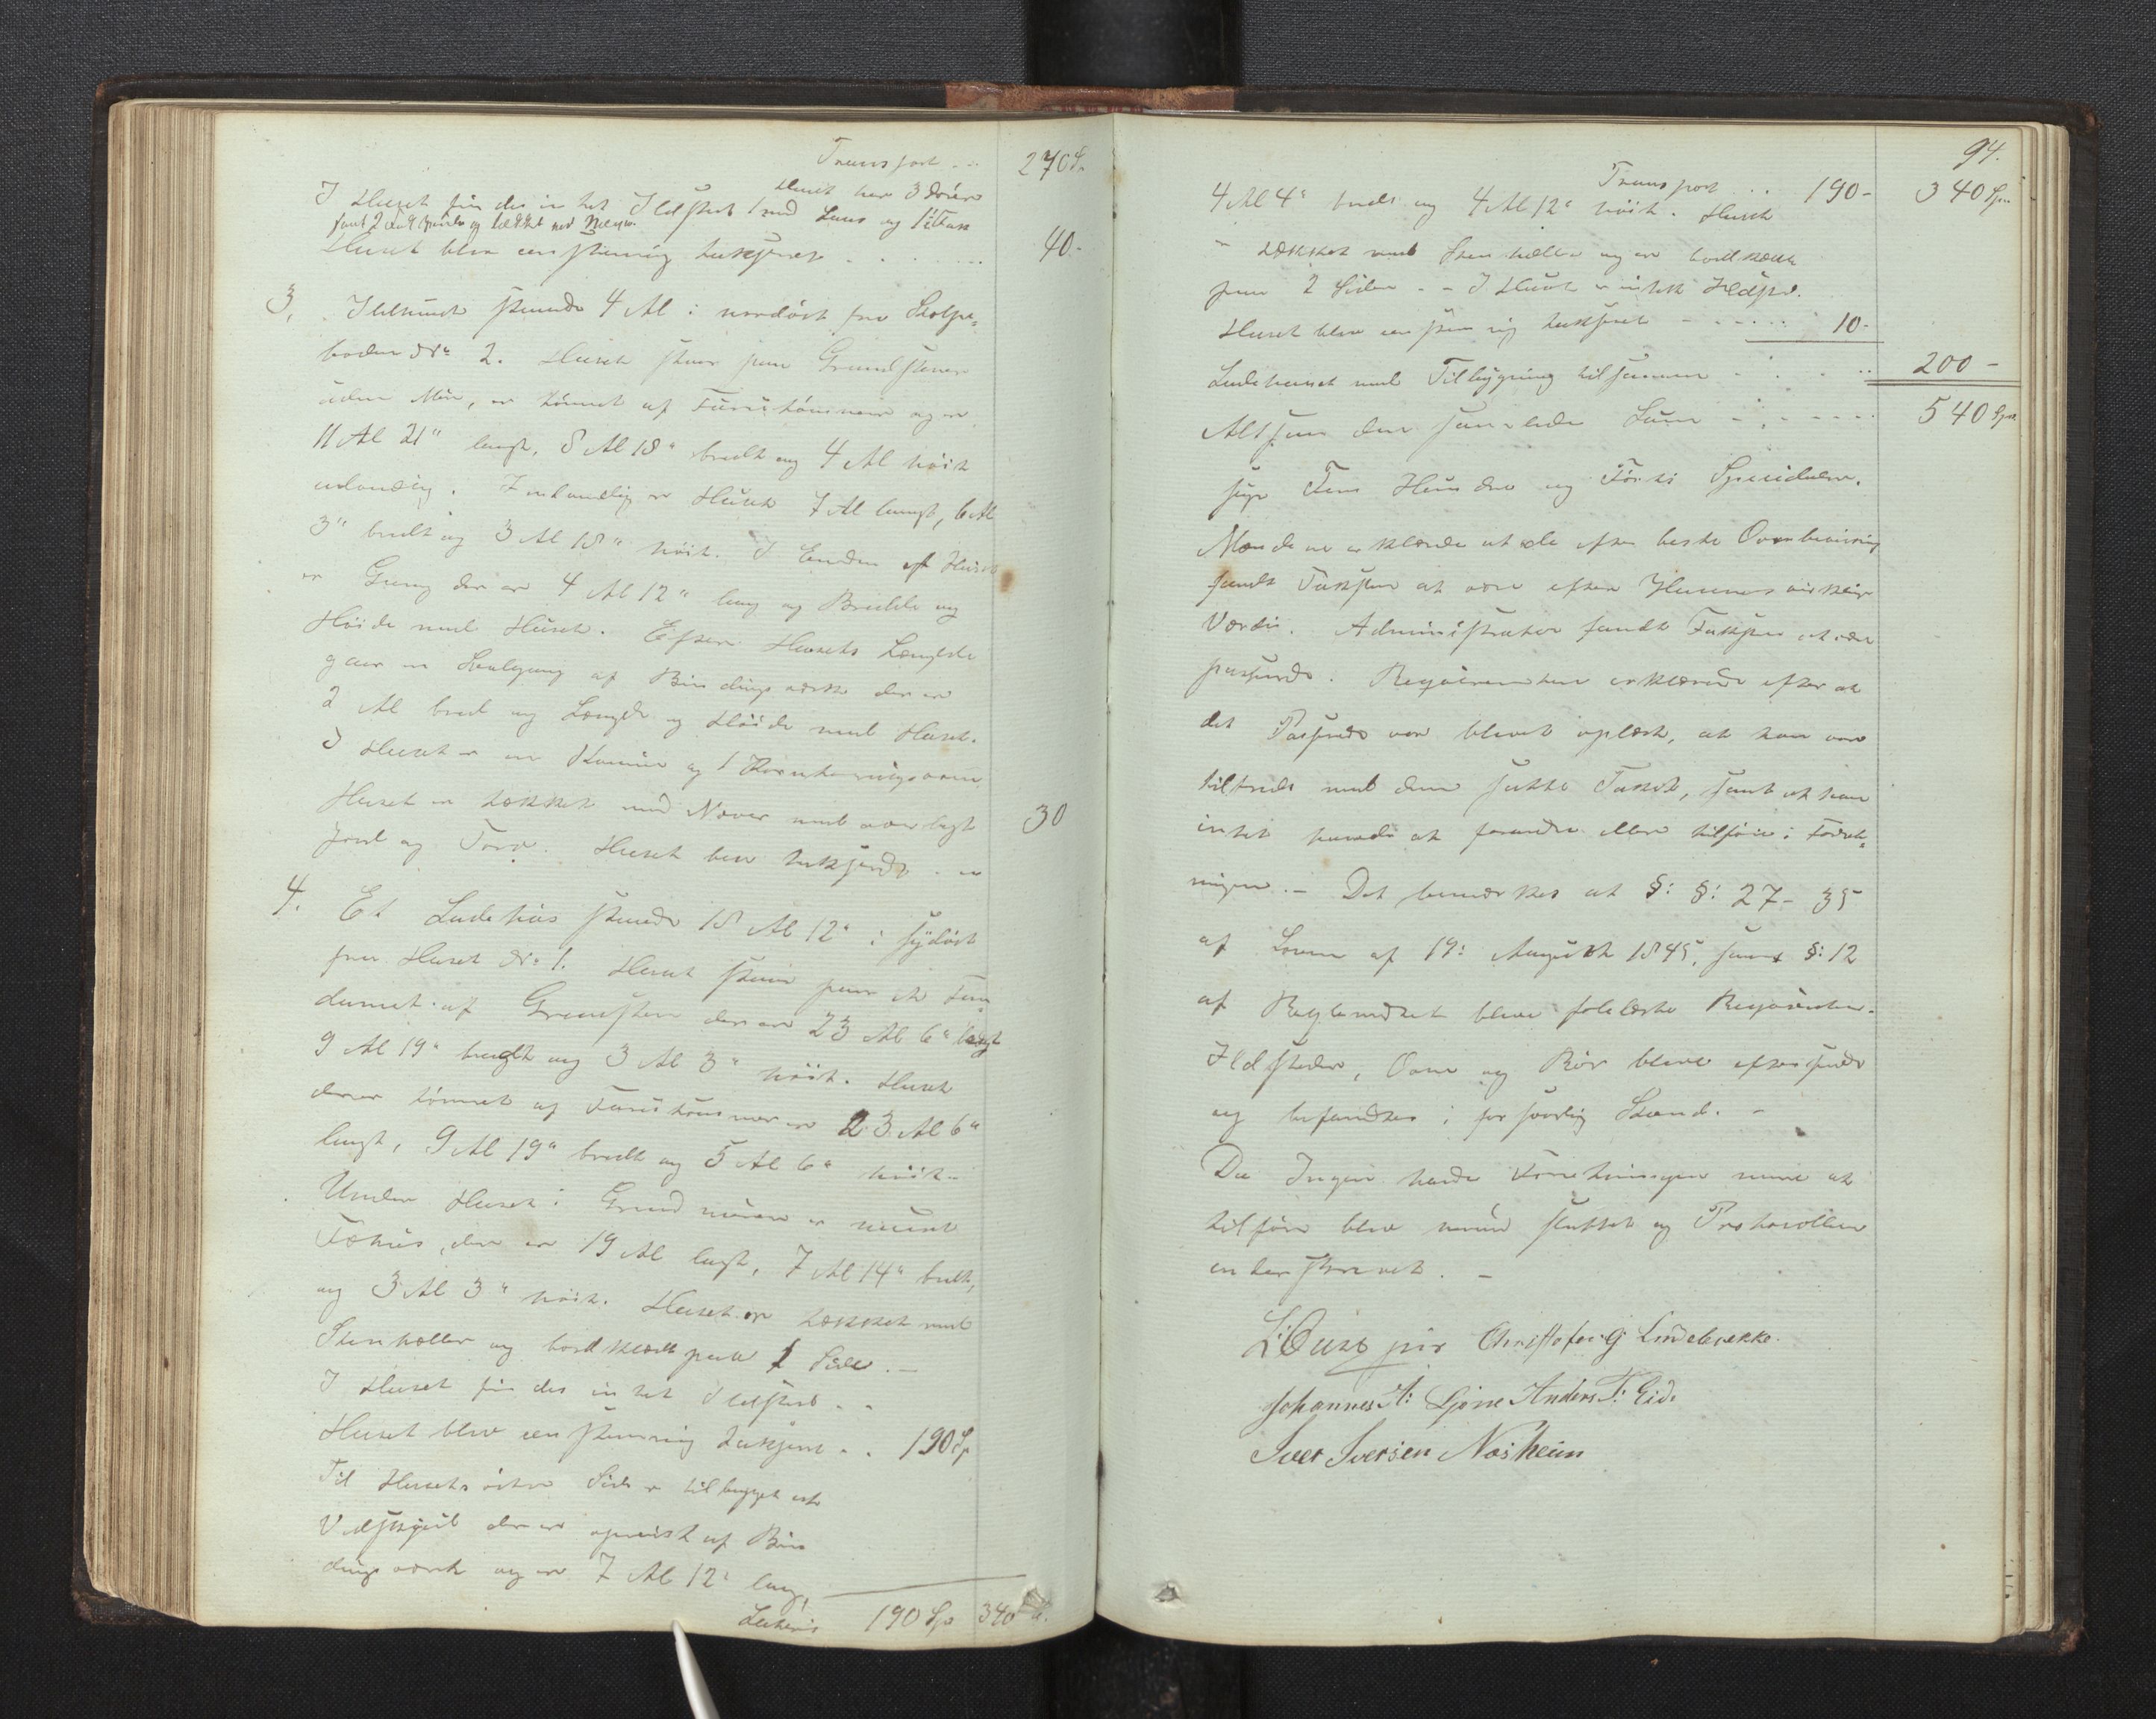 Transport ... 270 S.
Huset har 3 Döre
I Huset fin des in tet Ildsted 1 med Laas og 1 i Kass
samt 2 Vinduer og tækket med Næver.
Huset blev eenstemig taksjeret . . . . . . 40-
3. Ildhuset staaende 4 Al i nordöst fra Stolpe-
boden No 2. Huset staar paa Grundstene
uden Mur, er tömret af Furutömmer og er
11 Al 21" langt, 8 Al 18" bredt og 4 Al höit
udvendig. Indvendig er Huset 7 Al langt, 6 Al
3" bredt og 3 Al 18" höit. I Enden af Huset
er Gang der er 4 Al 12" lang og Bredde og
Höide med Huset. Efter Husets Længde
gaar en Svalgang af Bin dings værk der er
2 Al bred og Længde og Höide med Huset.
I Huset er en Kamin og 1 Korntöringsovn
Huset er tækket med Næver med overlagt
Jord og Torv. Huset blev taksjeret . . 30
4. Et Ladehus staaende 18 Al 12" i sydöst
fra Huset No 1. Huset staar paa et Fun-
dament af Graasteen der er 23 Al 6" langt
9 Al 19" bredt og 3 Al 3" höit. Huset
der er tömret af Furutömmer er 23 Al 6"
langt, 9 Al 19" bredt og 5 Al 6" höit.
Under Huset i Grund muren er muret
Fæhus, der er 19 Al langt, 7 Al 14" bredt,
og 3 Al 3" höit. Huset er tækket med
Steenheller og bordklædt paa 1 Side. -
I Huset fin des in tet Ildsted . .
Huset blev eenstemmig taksjeret . . 190 Sp
Til Husets östre Side er tilbygget et
Vedskjul der er opreist af Bin
dings værk og er 7 Al 12" langt,
Lateris 190 Sp 340
94.
Transport .. 190- 340 Spd.
4 Al 4" bredt og 4 Al 12" höit. Huset
er tækket med Steenheller og er bordklædt
paa 2 Sider. - I Huset er intet Ildsted.
Huset blev eenstem ig taksjeret - . . . . . 10-
Ladehuset med Tilbygning tilsammen . . . .. 200 -
Altsaa den samlede Sum - . - . . . . 540 Spd
siger Fem Hun dre og Förti Speciedaler.
Mændene erklærede at de efter beste Overbeviisning
fandt Taksten at være efter Husenes virkelige
Værdi. Administrator fandt Taksten at være
passende. Requirenten erklærede efter at
det Passerede var blevet oplæst, at han var
tilfreds med den satte Takst, samt at han
intet havde at forandre eller tilföie i Forret-
ningen. - Det bemærkes at §: §: 27 - 35
af Loven af 19: August 1845, samt §: 12
af Reglementet blev forelæste Requirenten.
Ildsteder, Ovne og Rör bleve efterseede
og befandtes i forsvarlig Stand. -
Da Ingen havde Forretningen mere at
tilföie blev samme sluttet og Protocollen
underskrevet. -
Christofer G. Lindebrekke.
Johannes A: Gjöne Anders T: Eide
Iver Iversen Næsheim